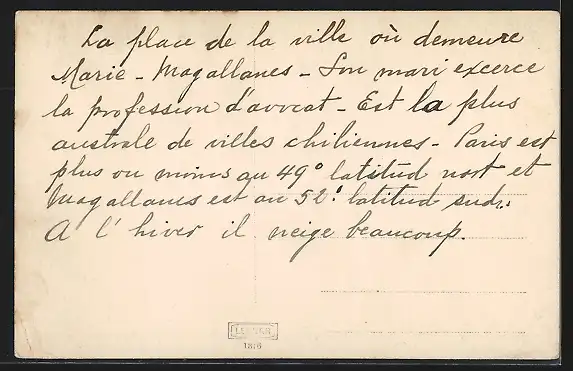 La place de la ville où demeure
Marie - Magallanes - Son mari excerce
la profession d'avocat - Est la plus
australe de villes chiliennes - Paris est
plus ou moins au 49° latitud nort et
Magallanes est au 52° latitud sud.
A l'hiver il neige beaucoup.